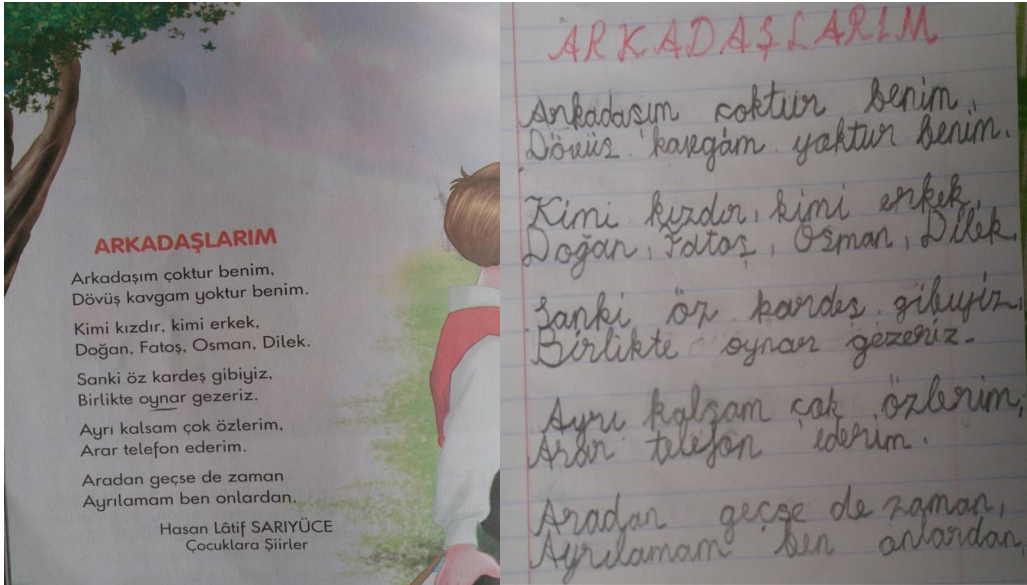 ARKADAŞLARIM
Arkadaşım çoktur benim,
Dövüş kavgam yoktur benim.
Kimi kızdır, kimi erkek,
Doğan, Fatoş, Osman, Dilek.
Sanki öz kardeş gibiyiz,
Birlikte oynar gezeriz.
Ayrı kalsam çok özlerim,
Arar telefon ederim.
Aradan geçse de zaman
Ayrılamam ben onlardan.
Hasan Lâtif SARIYÜCE
Çocuklara Şiirler
ARKADAŞLARIM
Arkadaşım çoktur benim,
Dövüş kavgam yoktur benim.
Kimi kızdır, kimi erkek,
Doğan, Fatoş, Osman, Dilek.
Sanki öz kardeş gibiyiz,
Birlikte oynar gezeriz.
Ayrı kalsam çok özlerim,
Arar telefon ederim.
Aradan geçse de zaman,
Ayrılamam ben onlardan